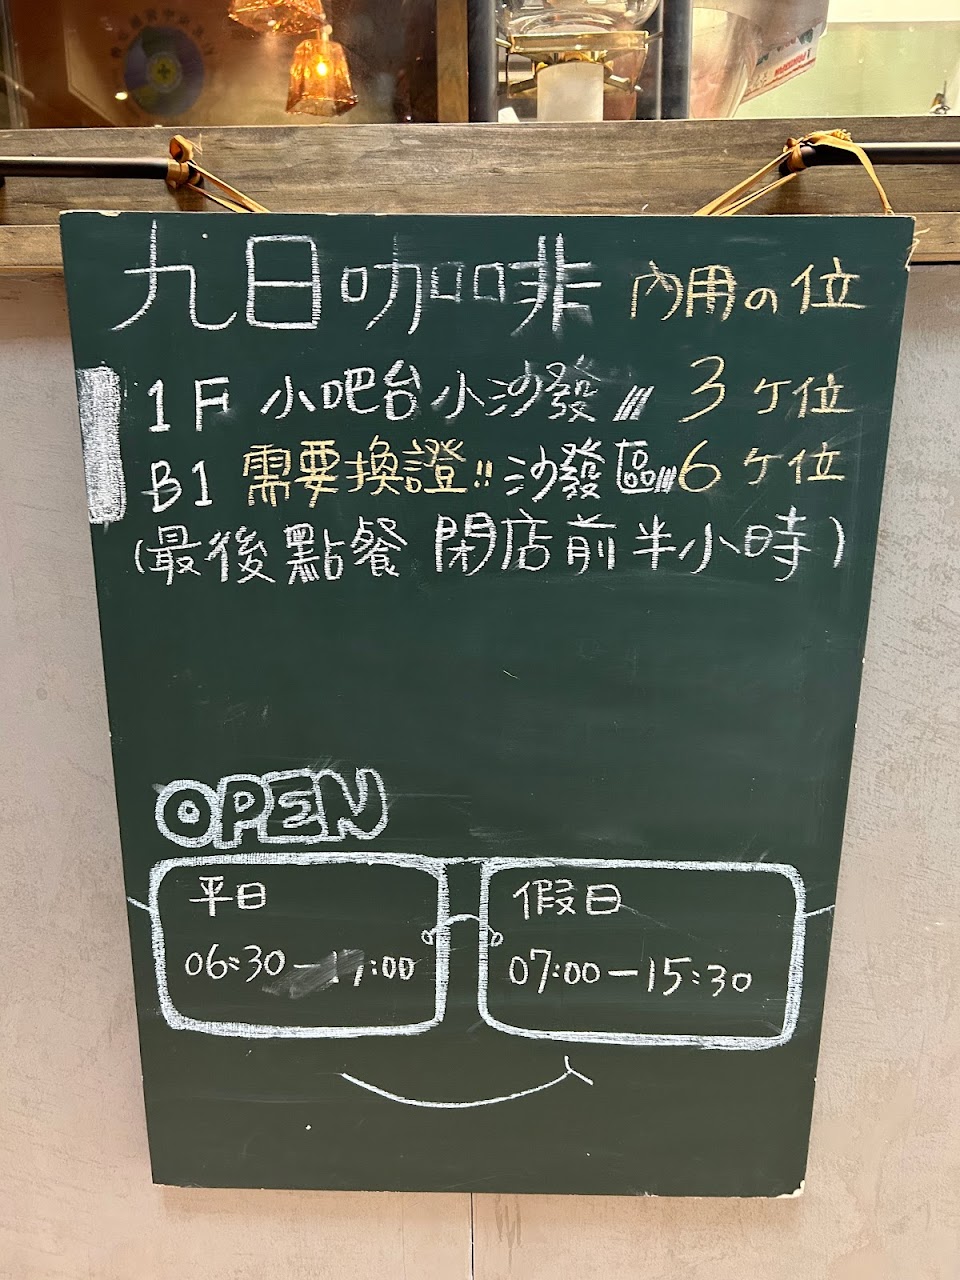 九日咖啡 內用の位
1F 小吧台小沙發 3ケ位
B1 需要換證!! 沙發區 6ケ位
(最後點餐 閉店前半小時)
OPEN
平日
06:30-17:00
假日
07:00-15:30